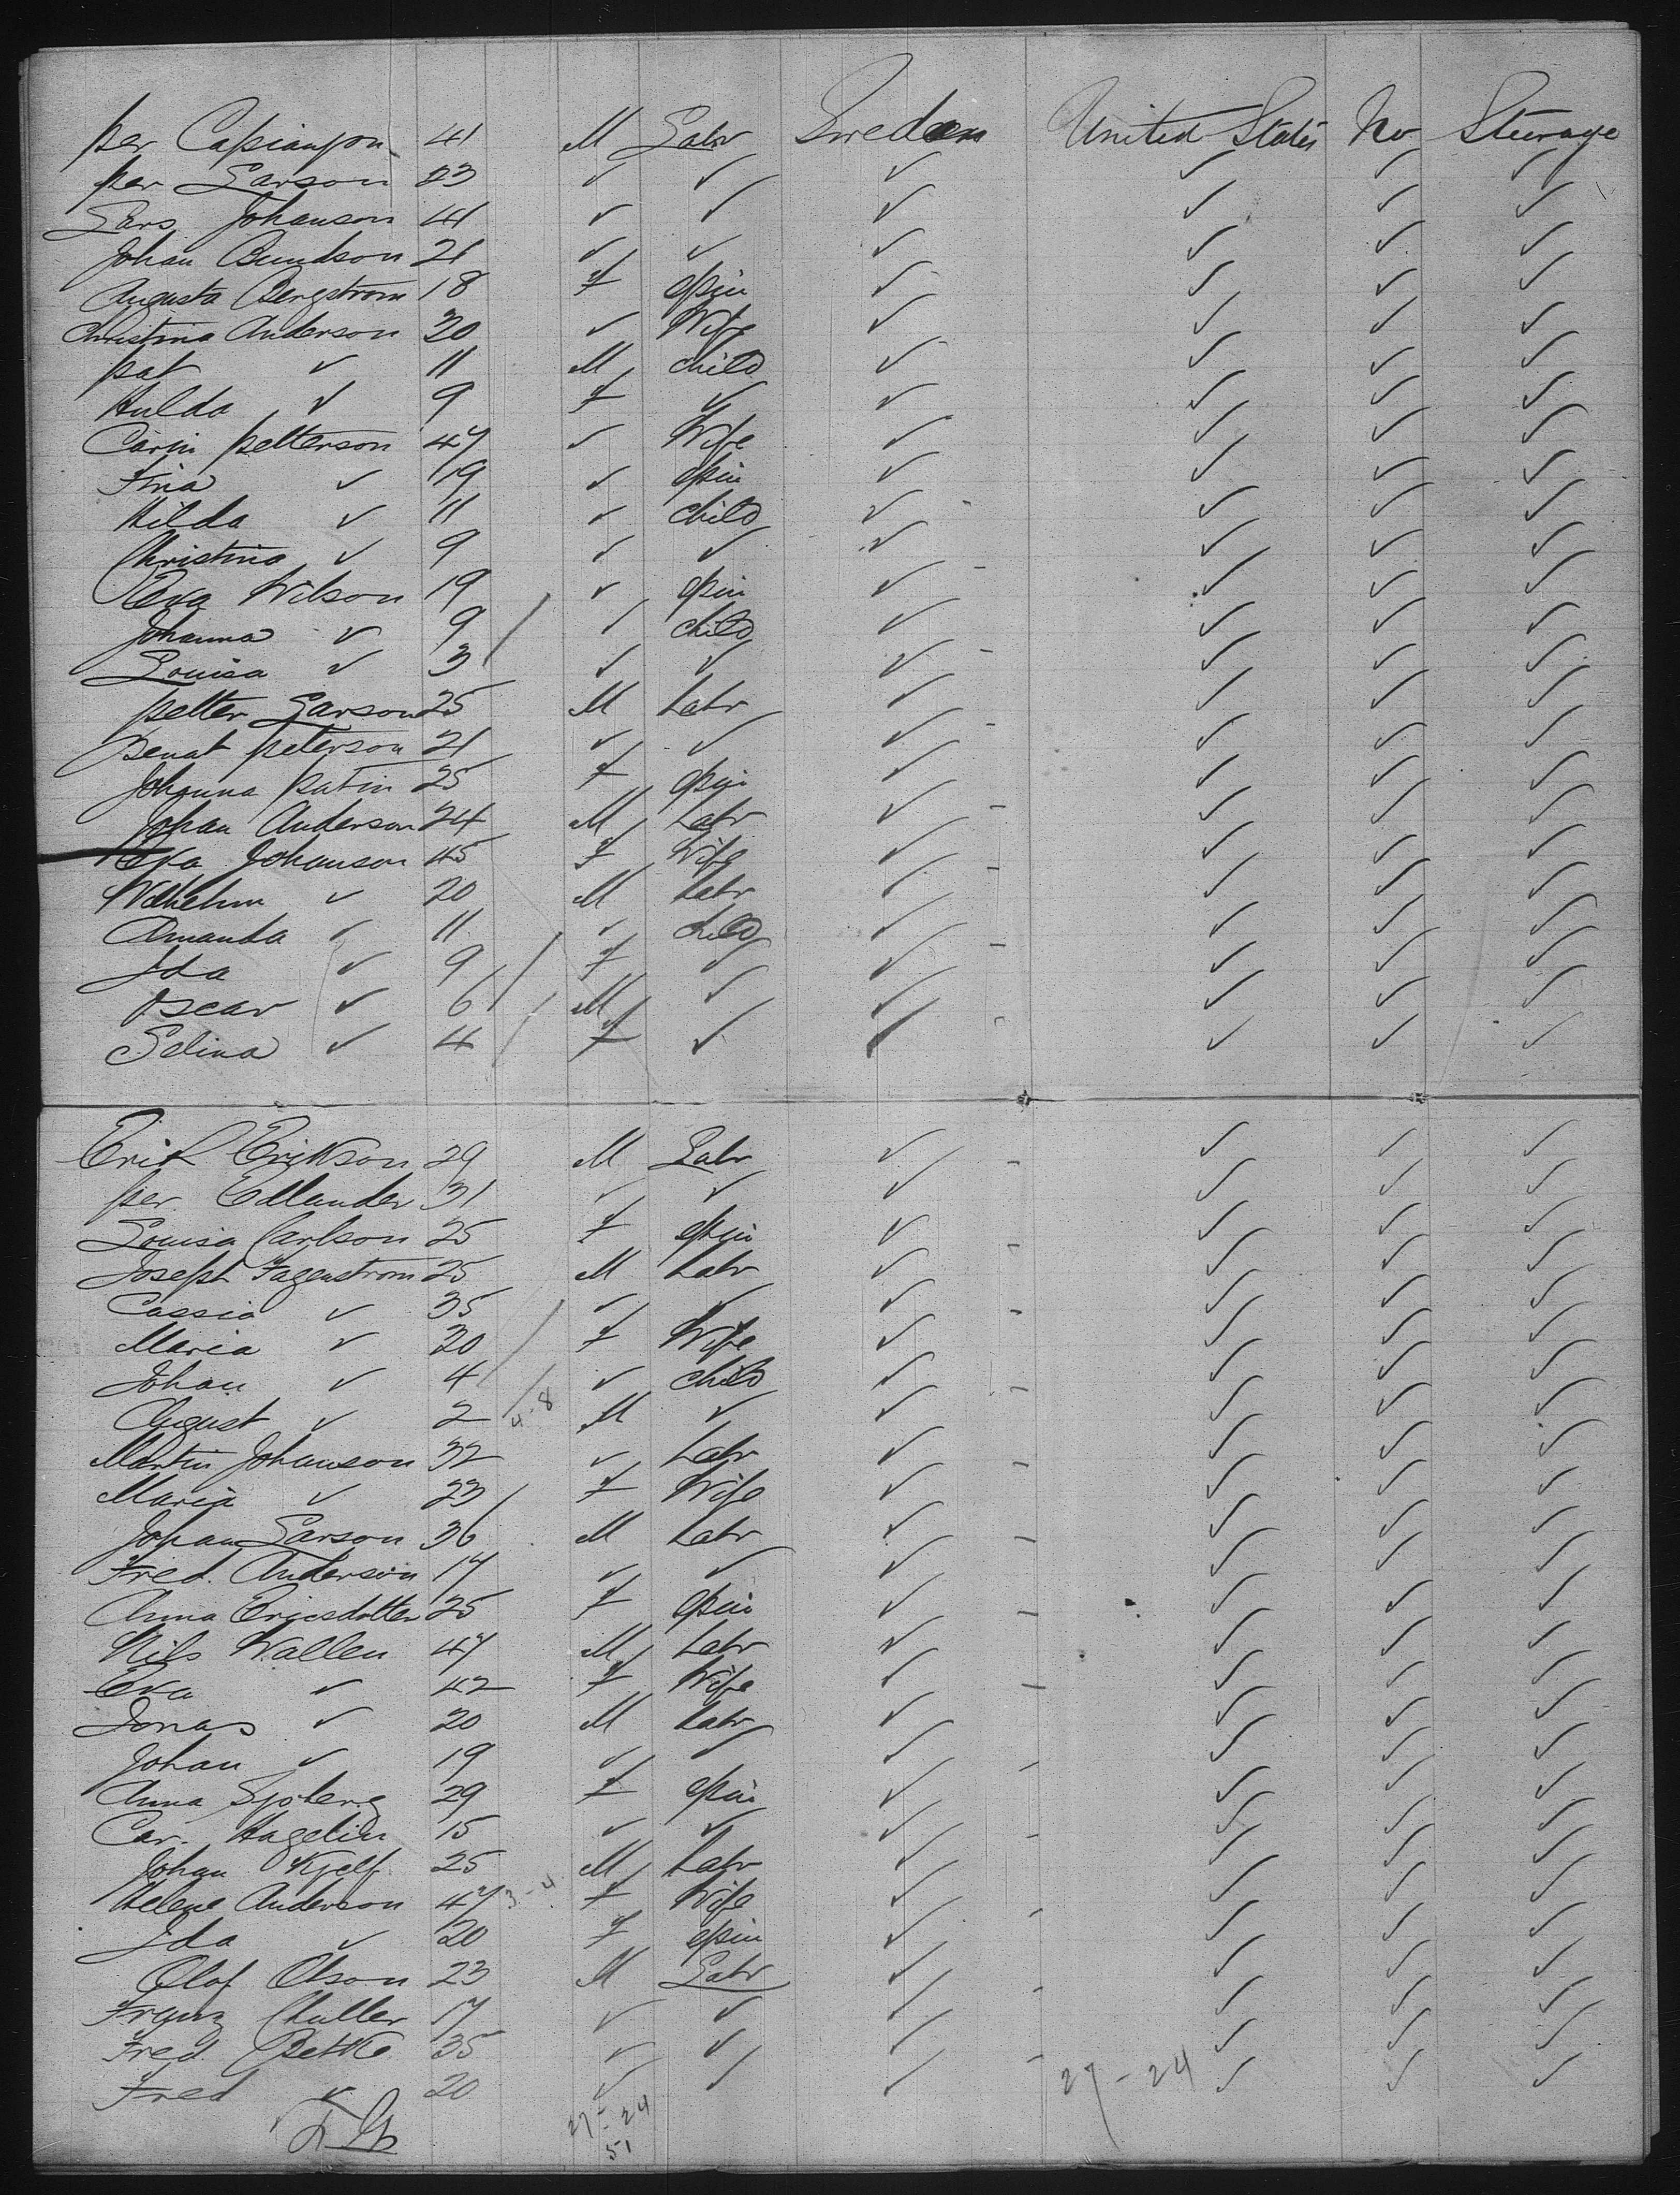 per 41 M Labr Sweden United States No Steerage
per Larson 23 ✓ ✓ ✓ ✓ ✓ ✓
Lars Johanson 41 ✓ ✓ ✓ ✓ ✓ ✓
Johan Bundson 21 ✓ ✓ ✓ ✓ ✓ ✓
Augusta Bergstrom 18 F Spin ✓ ✓ ✓ ✓
Christina Anderson 20 ✓ Wife ✓ ✓ ✓ ✓
pat ✓ 11 M child ✓ ✓ ✓ ✓
Hulda ✓ 9 F ✓ ✓ ✓ ✓ ✓
Carin petterson 47 ✓ Wife ✓ ✓ ✓ ✓
Fina ✓ 19 ✓ Spin ✓ ✓ ✓ ✓
Hilda ✓ 11 ✓ child ✓ ✓ ✓ ✓
Christina ✓ 9 ✓ ✓ ✓ ✓ ✓ ✓
Eva Wilson 19 ✓ Spin ✓ ✓ ✓ ✓
Johanna ✓ 9 ✓ child ✓ ✓ ✓ ✓
Louisa ✓ 3 ✓ ✓ ✓ ✓ ✓ ✓
petter Larson 25 M Labr ✓ ✓ ✓ ✓
Benat peterson 21 ✓ ✓ ✓ ✓ ✓ ✓
Johanna patin 25 F Spin ✓ ✓ ✓ ✓
Johan Anderson 24 M Labr ✓ ✓ ✓ ✓
Eva Johanson 45 F Wife ✓ ✓ ✓ ✓
Wilhelm ✓ 20 M Labr ✓ ✓ ✓ ✓
Amanda ✓ 11 ✓ child ✓ ✓ ✓ ✓
Ida ✓ 9 F ✓ ✓ ✓ ✓ ✓
Oscar ✓ 6 M ✓ ✓ ✓ ✓ ✓
Selina ✓ 4 F ✓ ✓ ✓ ✓ ✓
Erik Erikson 29 M Labr ✓ ✓ ✓ ✓
per Edlander 31 ✓ ✓ ✓ ✓ ✓ ✓
Louisa Carlson 25 F Spin ✓ ✓ ✓ ✓
Joseph Fagenstrom 25 M Labr ✓ ✓ ✓ ✓
Cassia ✓ 35 ✓ ✓ ✓ ✓ ✓ ✓
Maria ✓ 30 F Wife ✓ ✓ ✓ ✓
Johan ✓ 4 ✓ child ✓ ✓ ✓ ✓
August ✓ 2 4-8 M ✓ ✓ ✓ ✓ ✓
Martin Johanson 32 ✓ Labr ✓ ✓ ✓ ✓
Maria ✓ 23 F Wife ✓ ✓ ✓ ✓
Johan Larson 36 M Labr ✓ ✓ ✓ ✓
Fred. Anderson 17 ✓ ✓ ✓ ✓ ✓ ✓
Anna Ericsdotter 25 F Spin ✓ ✓ ✓ ✓
Nils Wallen 47 M Labr ✓ ✓ ✓ ✓
Eva ✓ 42 F Wife ✓ ✓ ✓ ✓
Jonas ✓ 20 M Labr ✓ ✓ ✓ ✓
Johan ✓ 19 ✓ ✓ ✓ ✓ ✓ ✓
Anna Sjoberg 29 F Spin ✓ ✓ ✓ ✓
Car. Hagelin 15 ✓ ✓ ✓ ✓ ✓ ✓
Johan Kjelf 25 M Labr ✓ ✓ ✓ ✓
Helene Anderson 47 3-4 F Wife ✓ ✓ ✓ ✓
Ida ✓ 20 F Spin ✓ ✓ ✓ ✓
Olof Olson 23 M Labr ✓ ✓ ✓ ✓
Franz Chuller 17 ✓ ✓ ✓ ✓ ✓ ✓
Fred. Pettke 35 ✓ ✓ ✓ ✓ ✓ ✓
Fred ✓ 20 ✓ ✓ ✓ 27-24 ✓ ✓ ✓
27-24
51